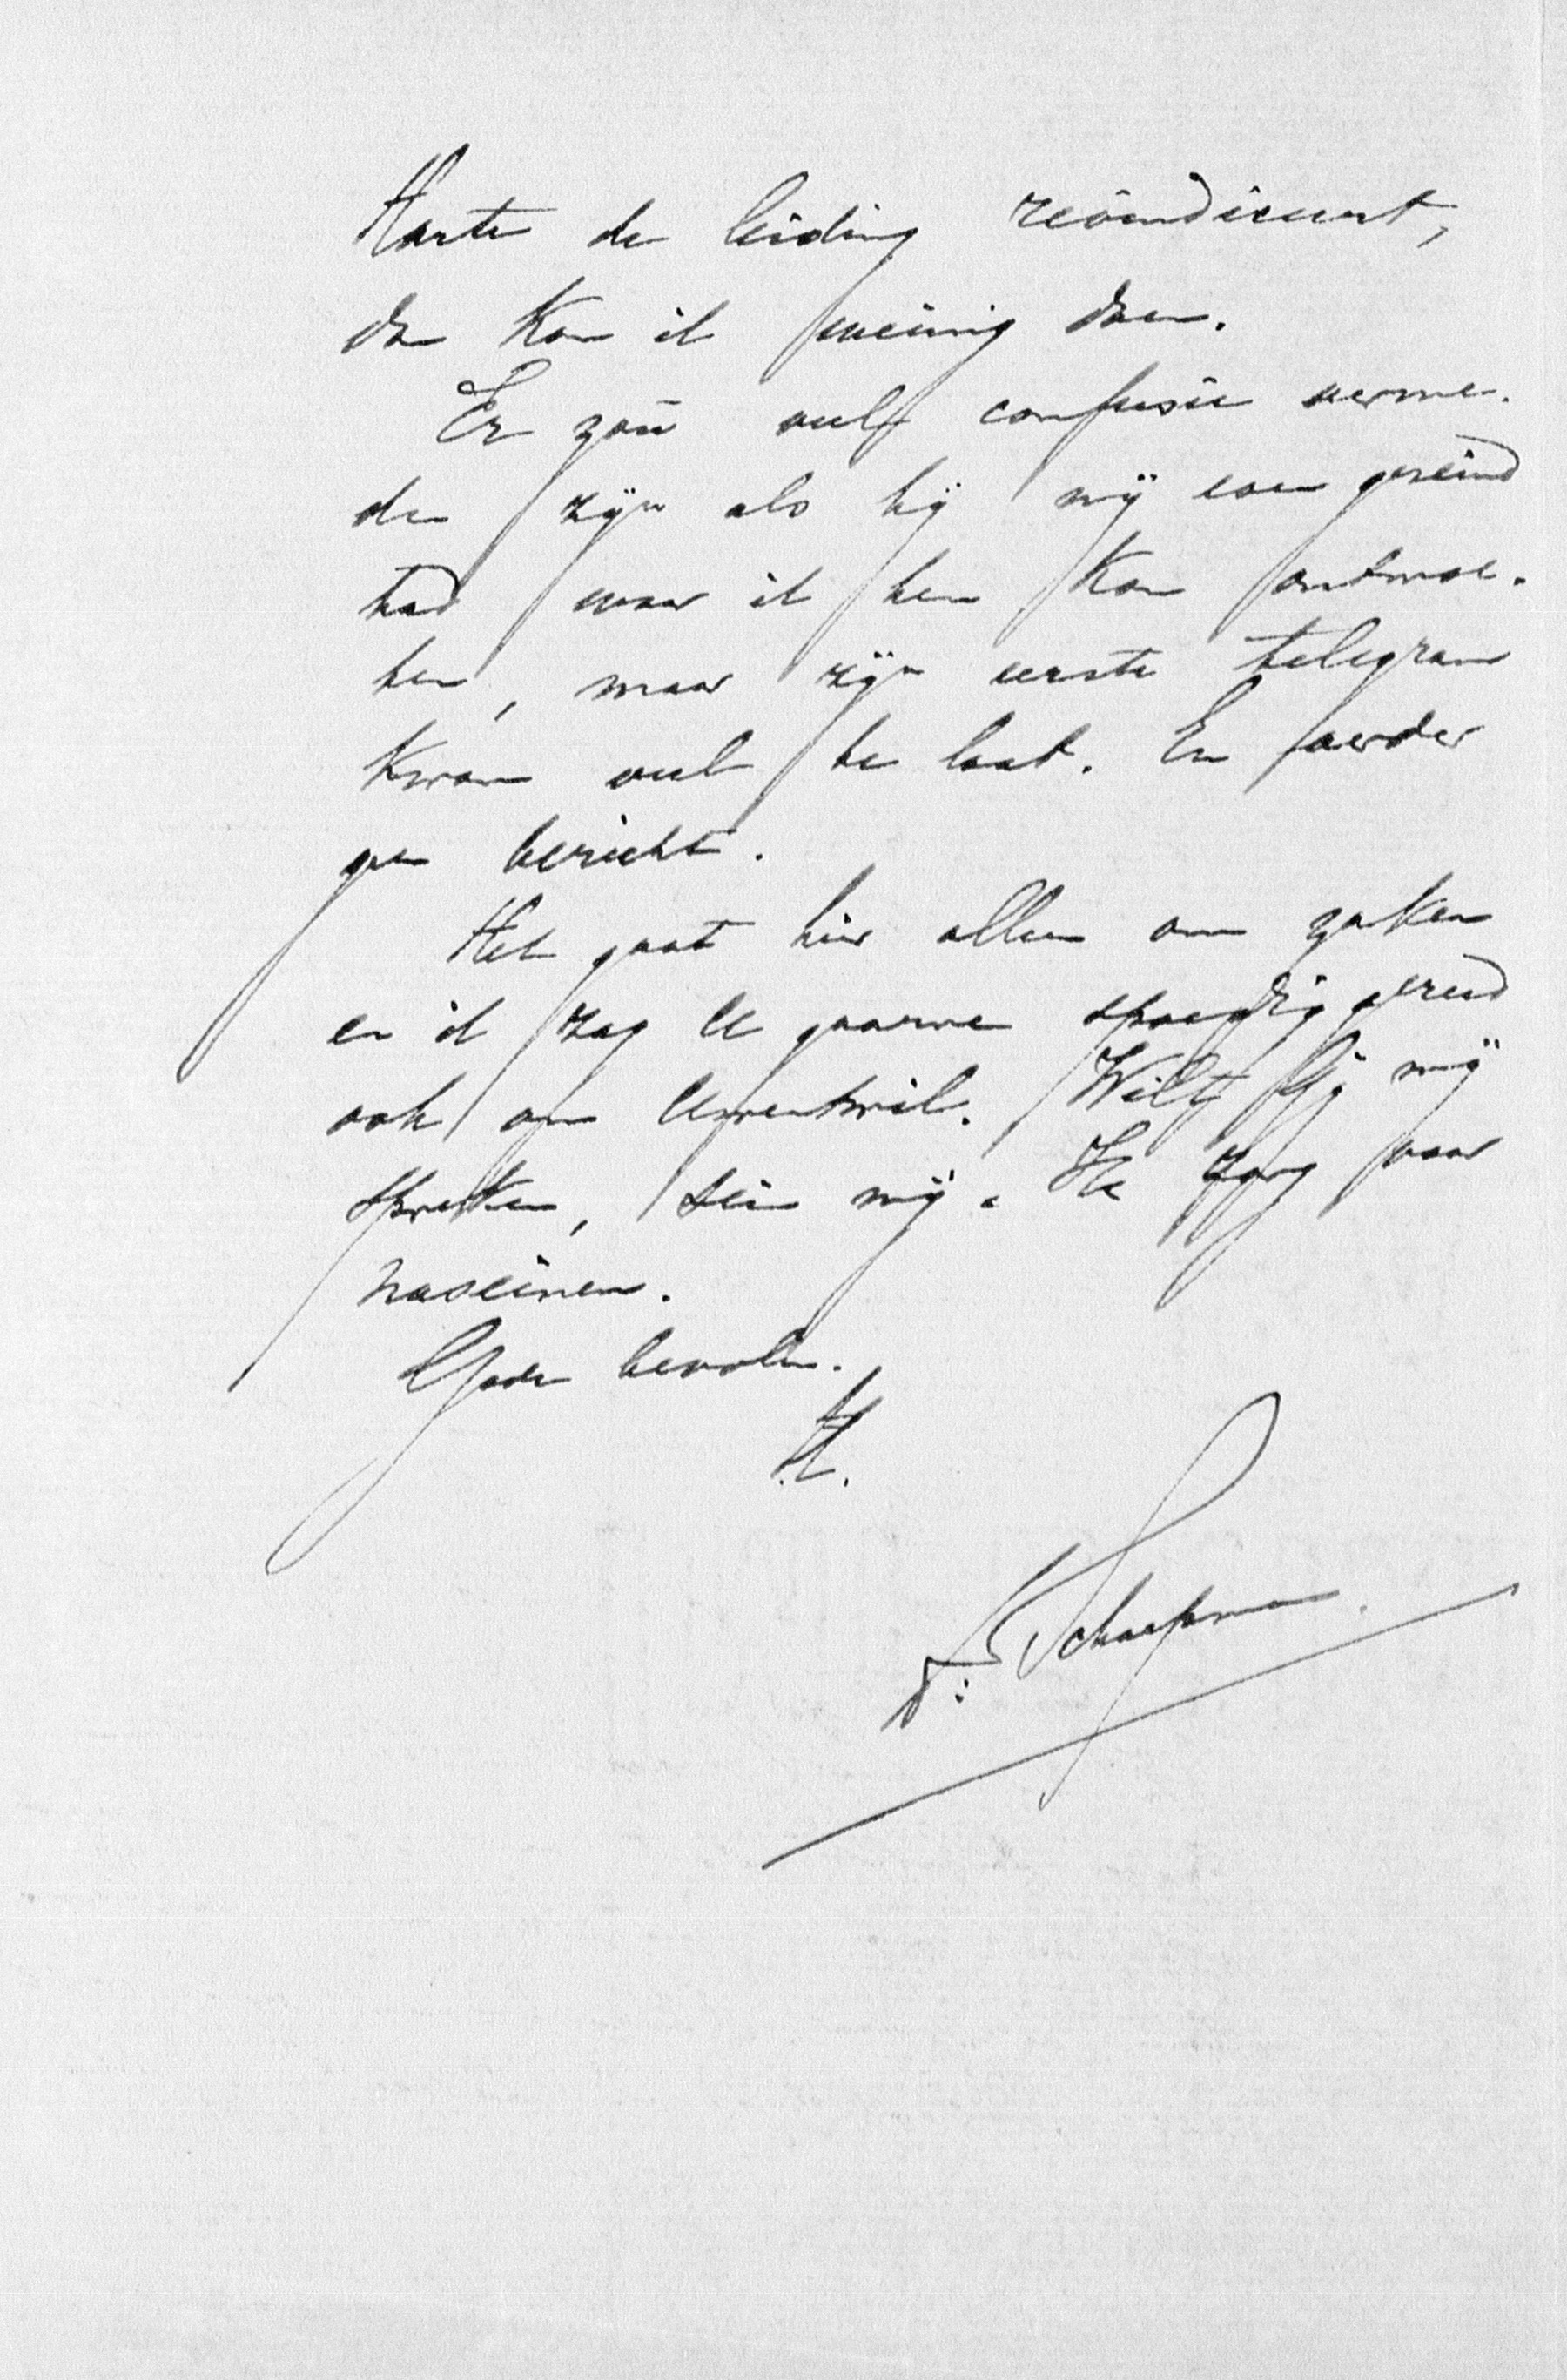 Harte de leiding revindiceert,
dan kon ik weinig doen.
Er zou veel confusie verme-
den zijn als hij mij even geseind
had waar ik hem kon ontmoe-
ten, maar zijn eerste telegram
kwam veel te laat. En verder
geen bericht.
Het gaat hier alleen om zaken
en ik zag U gaarne spoedig gereed
ook om Uwentwil. Wilt Gij mij
spreken, sein mij. Ik zorg voor
naseinen.
Gode bevolen.
tt.
Dr Schaepman.